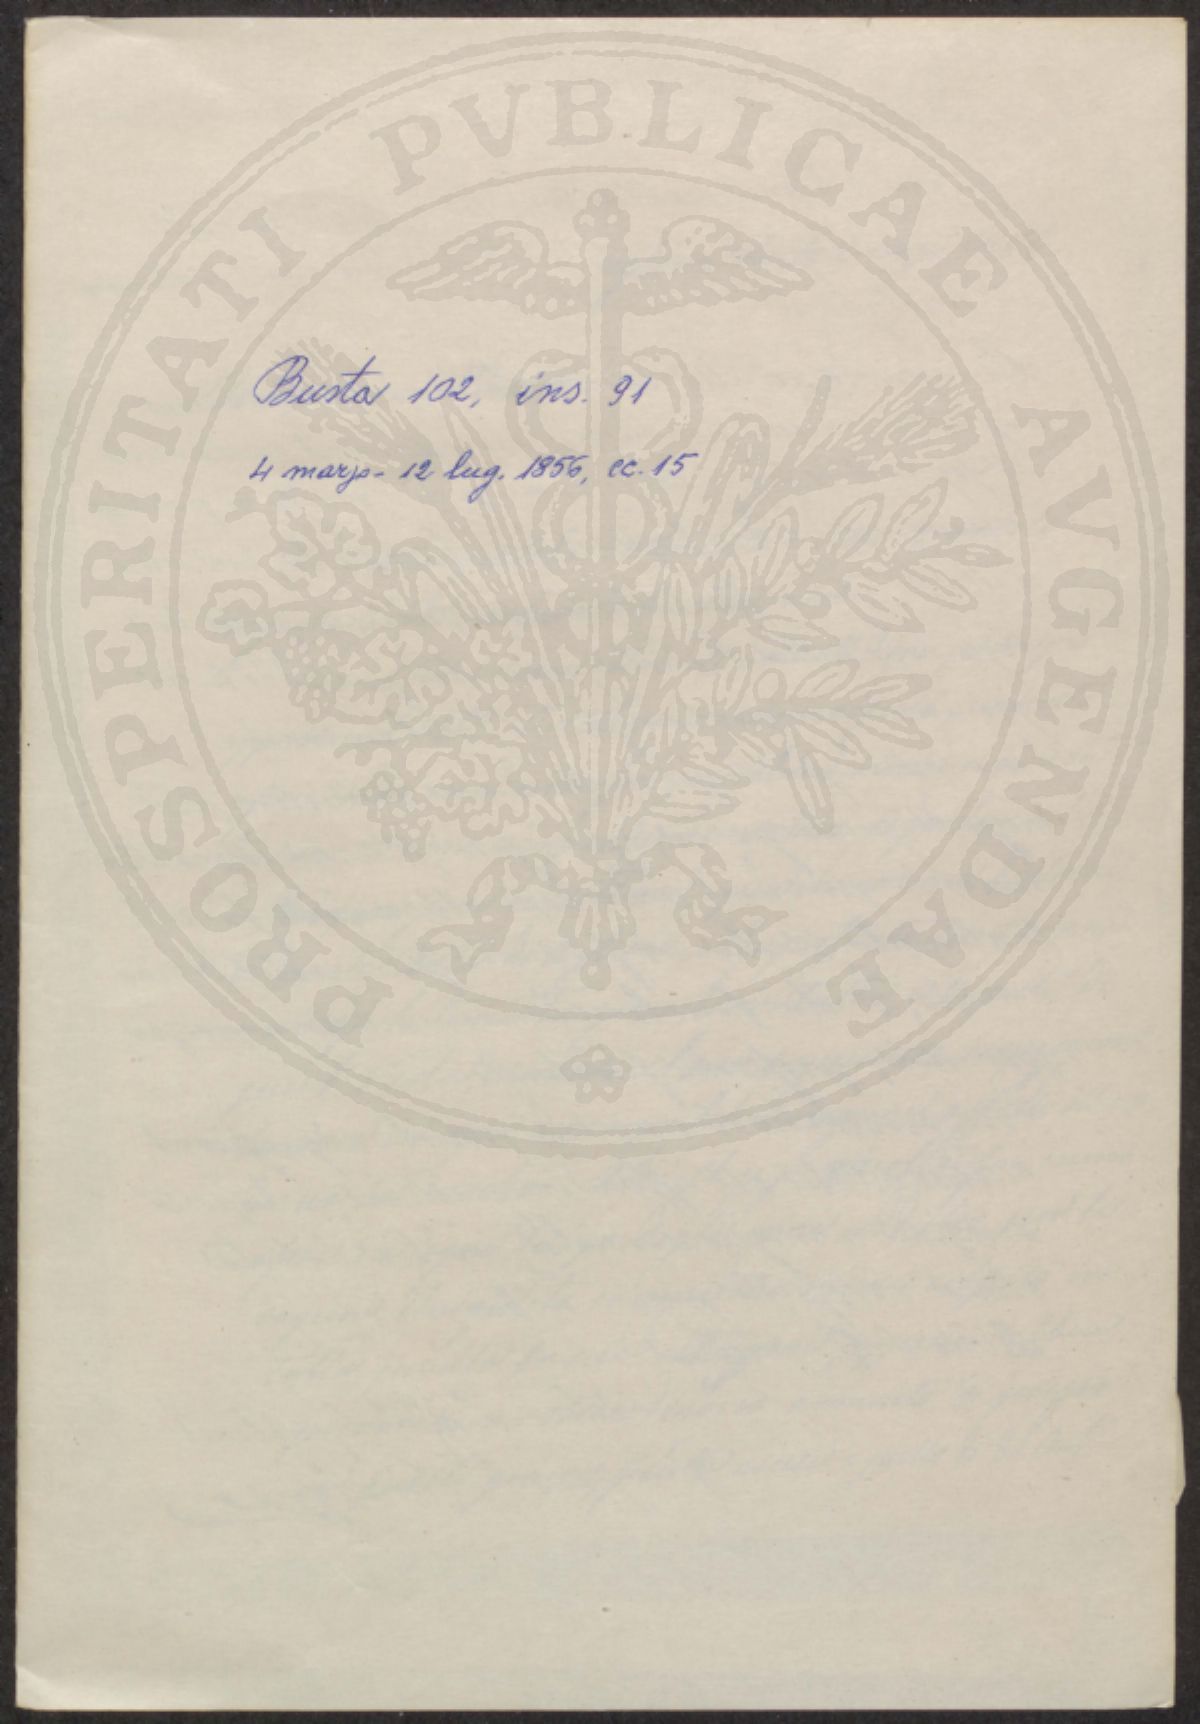 PROSPERITATI PVBLICAE AVGENDAE
Busta 102, ins. 91
4 marzo - 12 lug. 1856, cc. 15